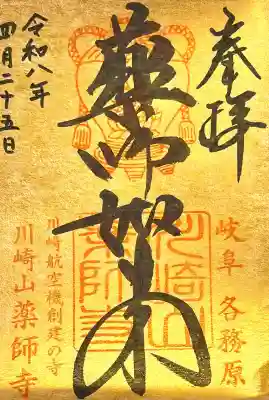 奉拝
薬師如来
令和八年
四月二十五日
岐阜 各務原
川崎山薬師寺
川崎航空機創建の寺
川崎山薬師寺